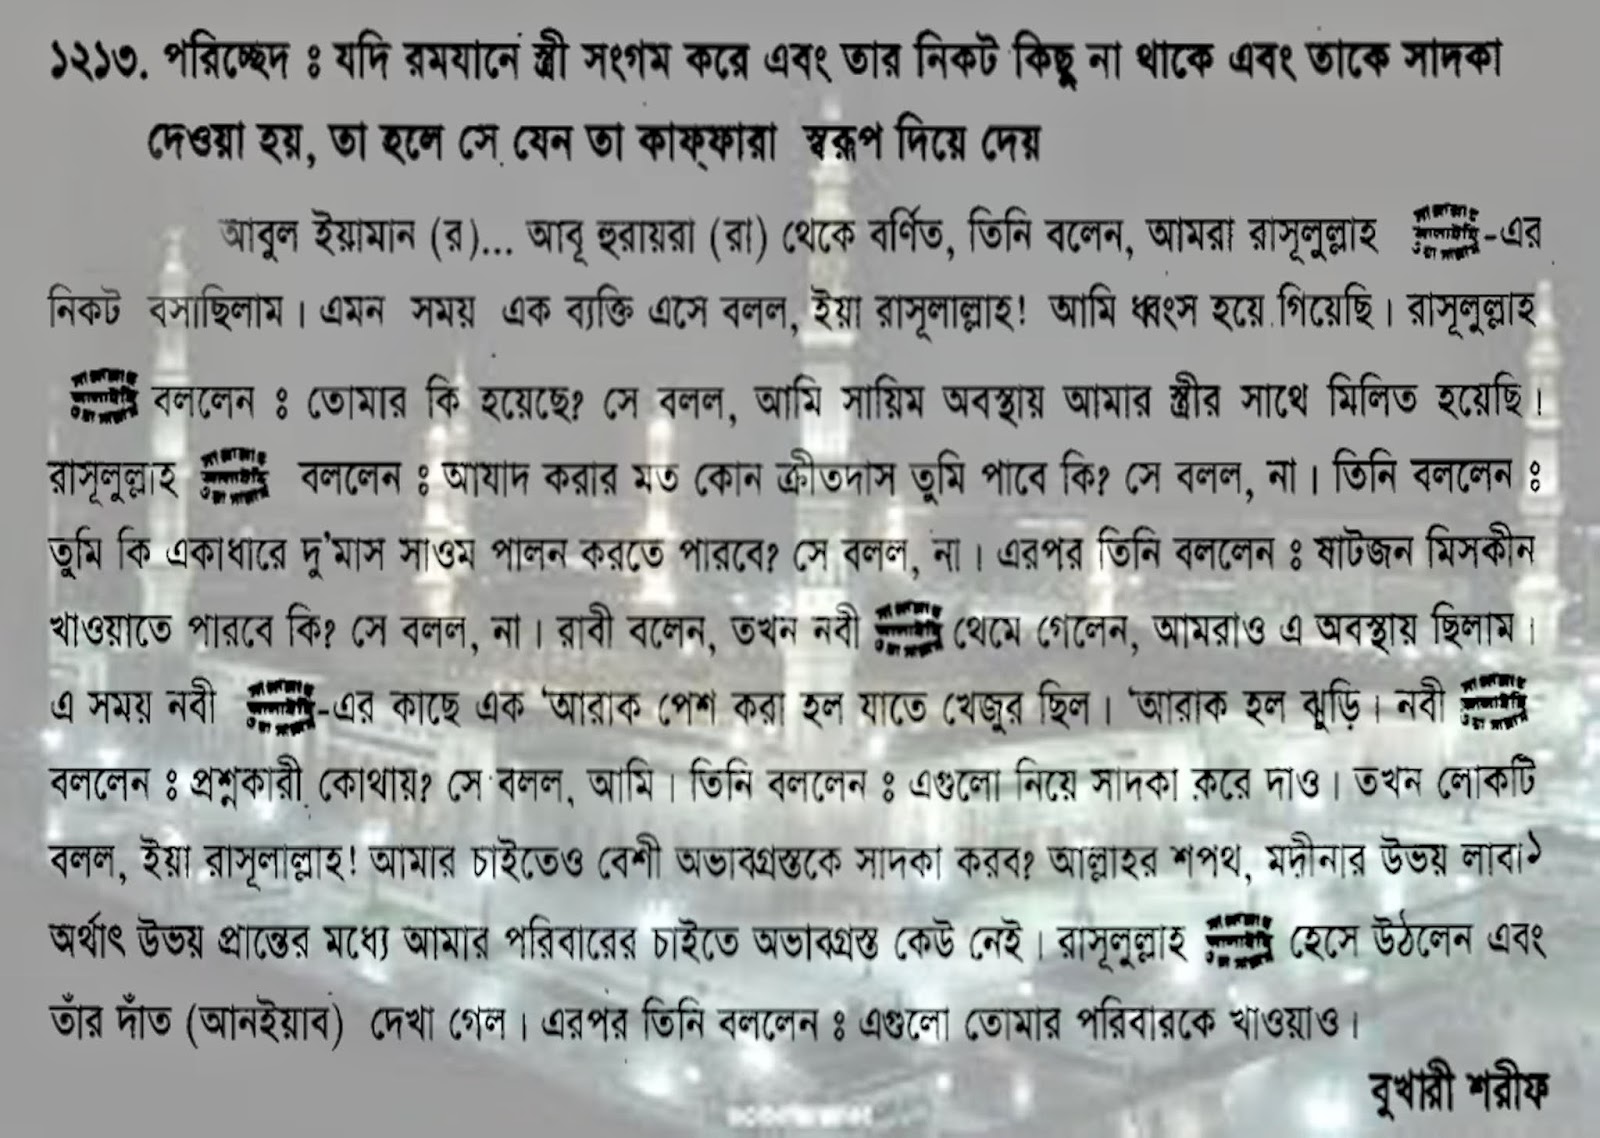 ১২১৩. পরিচ্ছেদ : যদি রমযানে স্ত্রী সংগম করে এবং তার নিকট কিছু না থাকে এবং তাকে সাদকা
দেওয়া হয়, তা হলে সে যেন তা কাফ্ফারা স্বরূপ দিয়ে দেয়
আবুল ইয়ামান (র)... আবূ হুরায়রা (রা) থেকে বর্ণিত, তিনি বলেন, আমরা রাসূলুল্লাহ সাল্লাল্লাহু আলাইহি ওয়া সাল্লাম-এর
নিকট বসাছিলাম। এমন সময় এক ব্যক্তি এসে বলল, ইয়া রাসূলাল্লাহ! আমি ধ্বংস হয়ে গিয়েছি। রাসূলুল্লাহ
সাল্লাল্লাহু আলাইহি ওয়া সাল্লাম বললেন : তোমার কি হয়েছে? সে বলল, আমি সায়িম অবস্থায় আমার স্ত্রীর সাথে মিলিত হয়েছি।
রাসূলুল্লাহ সাল্লাল্লাহু আলাইহি ওয়া সাল্লাম বললেন : আযাদ করার মত কোন ক্রীতদাস তুমি পাবে কি? সে বলল, না। তিনি বললেন :
তুমি কি একাধারে দু'মাস সাওম পালন করতে পারবে? সে বলল, না। এরপর তিনি বললেন : ষাটজন মিসকীন
খাওয়াতে পারবে কি? সে বলল, না। রাবী বলেন, তখন নবী সাল্লাল্লাহু আলাইহি ওয়া সাল্লাম থেমে গেলেন, আমরাও এ অবস্থায় ছিলাম।
এ সময় নবী সাল্লাল্লাহু আলাইহি ওয়া সাল্লাম-এর কাছে এক 'আরাক পেশ করা হল যাতে খেজুর ছিল। 'আরাক হল ঝুড়ি। নবী সাল্লাল্লাহু আলাইহি ওয়া সাল্লাম
বললেন : প্রশ্নকারী কোথায়? সে বলল, আমি। তিনি বললেন : এগুলো নিয়ে সাদকা করে দাও। তখন লোকটি
বলল, ইয়া রাসূলাল্লাহ! আমার চাইতেও বেশী অভাবগ্রস্তকে সাদকা করব? আল্লাহর শপথ, মদীনার উভয় লাবা১
অর্থাৎ উভয় প্রান্তের মধ্যে আমার পরিবারের চাইতে অভাবগ্রস্ত কেউ নেই। রাসূলুল্লাহ সাল্লাল্লাহু আলাইহি ওয়া সাল্লাম হেসে উঠলেন এবং
তাঁর দাঁত (আনইয়াব) দেখা গেল। এরপর তিনি বললেন : এগুলো তোমার পরিবারকে খাওয়াও।
বুখারী শরীফ